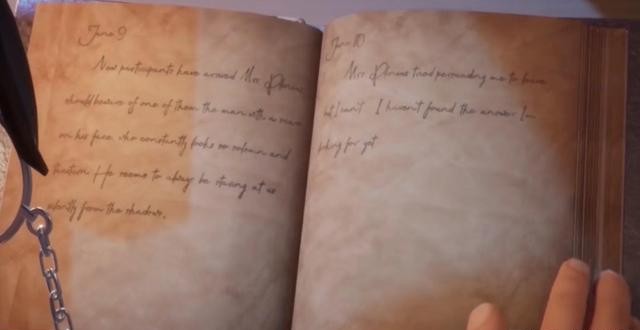 June 9
New participants have arrived Mrs.
should beware of one of them the man with a scar
on his face who constantly looks so solemn and
He seems to always be staring at us
silently from the shadows.
June 10
Mrs. tried persuading me to leave
but I can't I haven't found the answer I'm
looking for yet